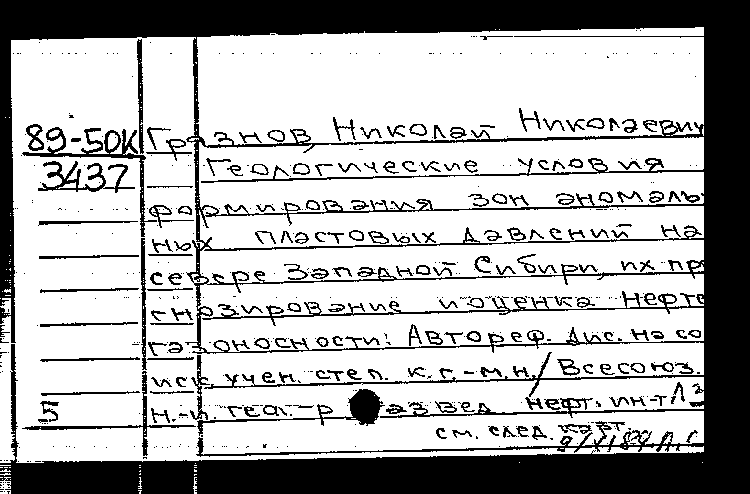 89-50К Грязнов, Николай Николаевич
3437 Геологические условия
формирования зон аномаль
ных пластовых давлений на
севере Западной Сибири, их пр
гнозирование и оценка нефте
газоносности: Автореф. дис. на со
иск. учен. степ. к.г.-м.н. / Всесоюз.
5 н.-и. геол.-р азвед. нефт. ин-т
см. след. карт.